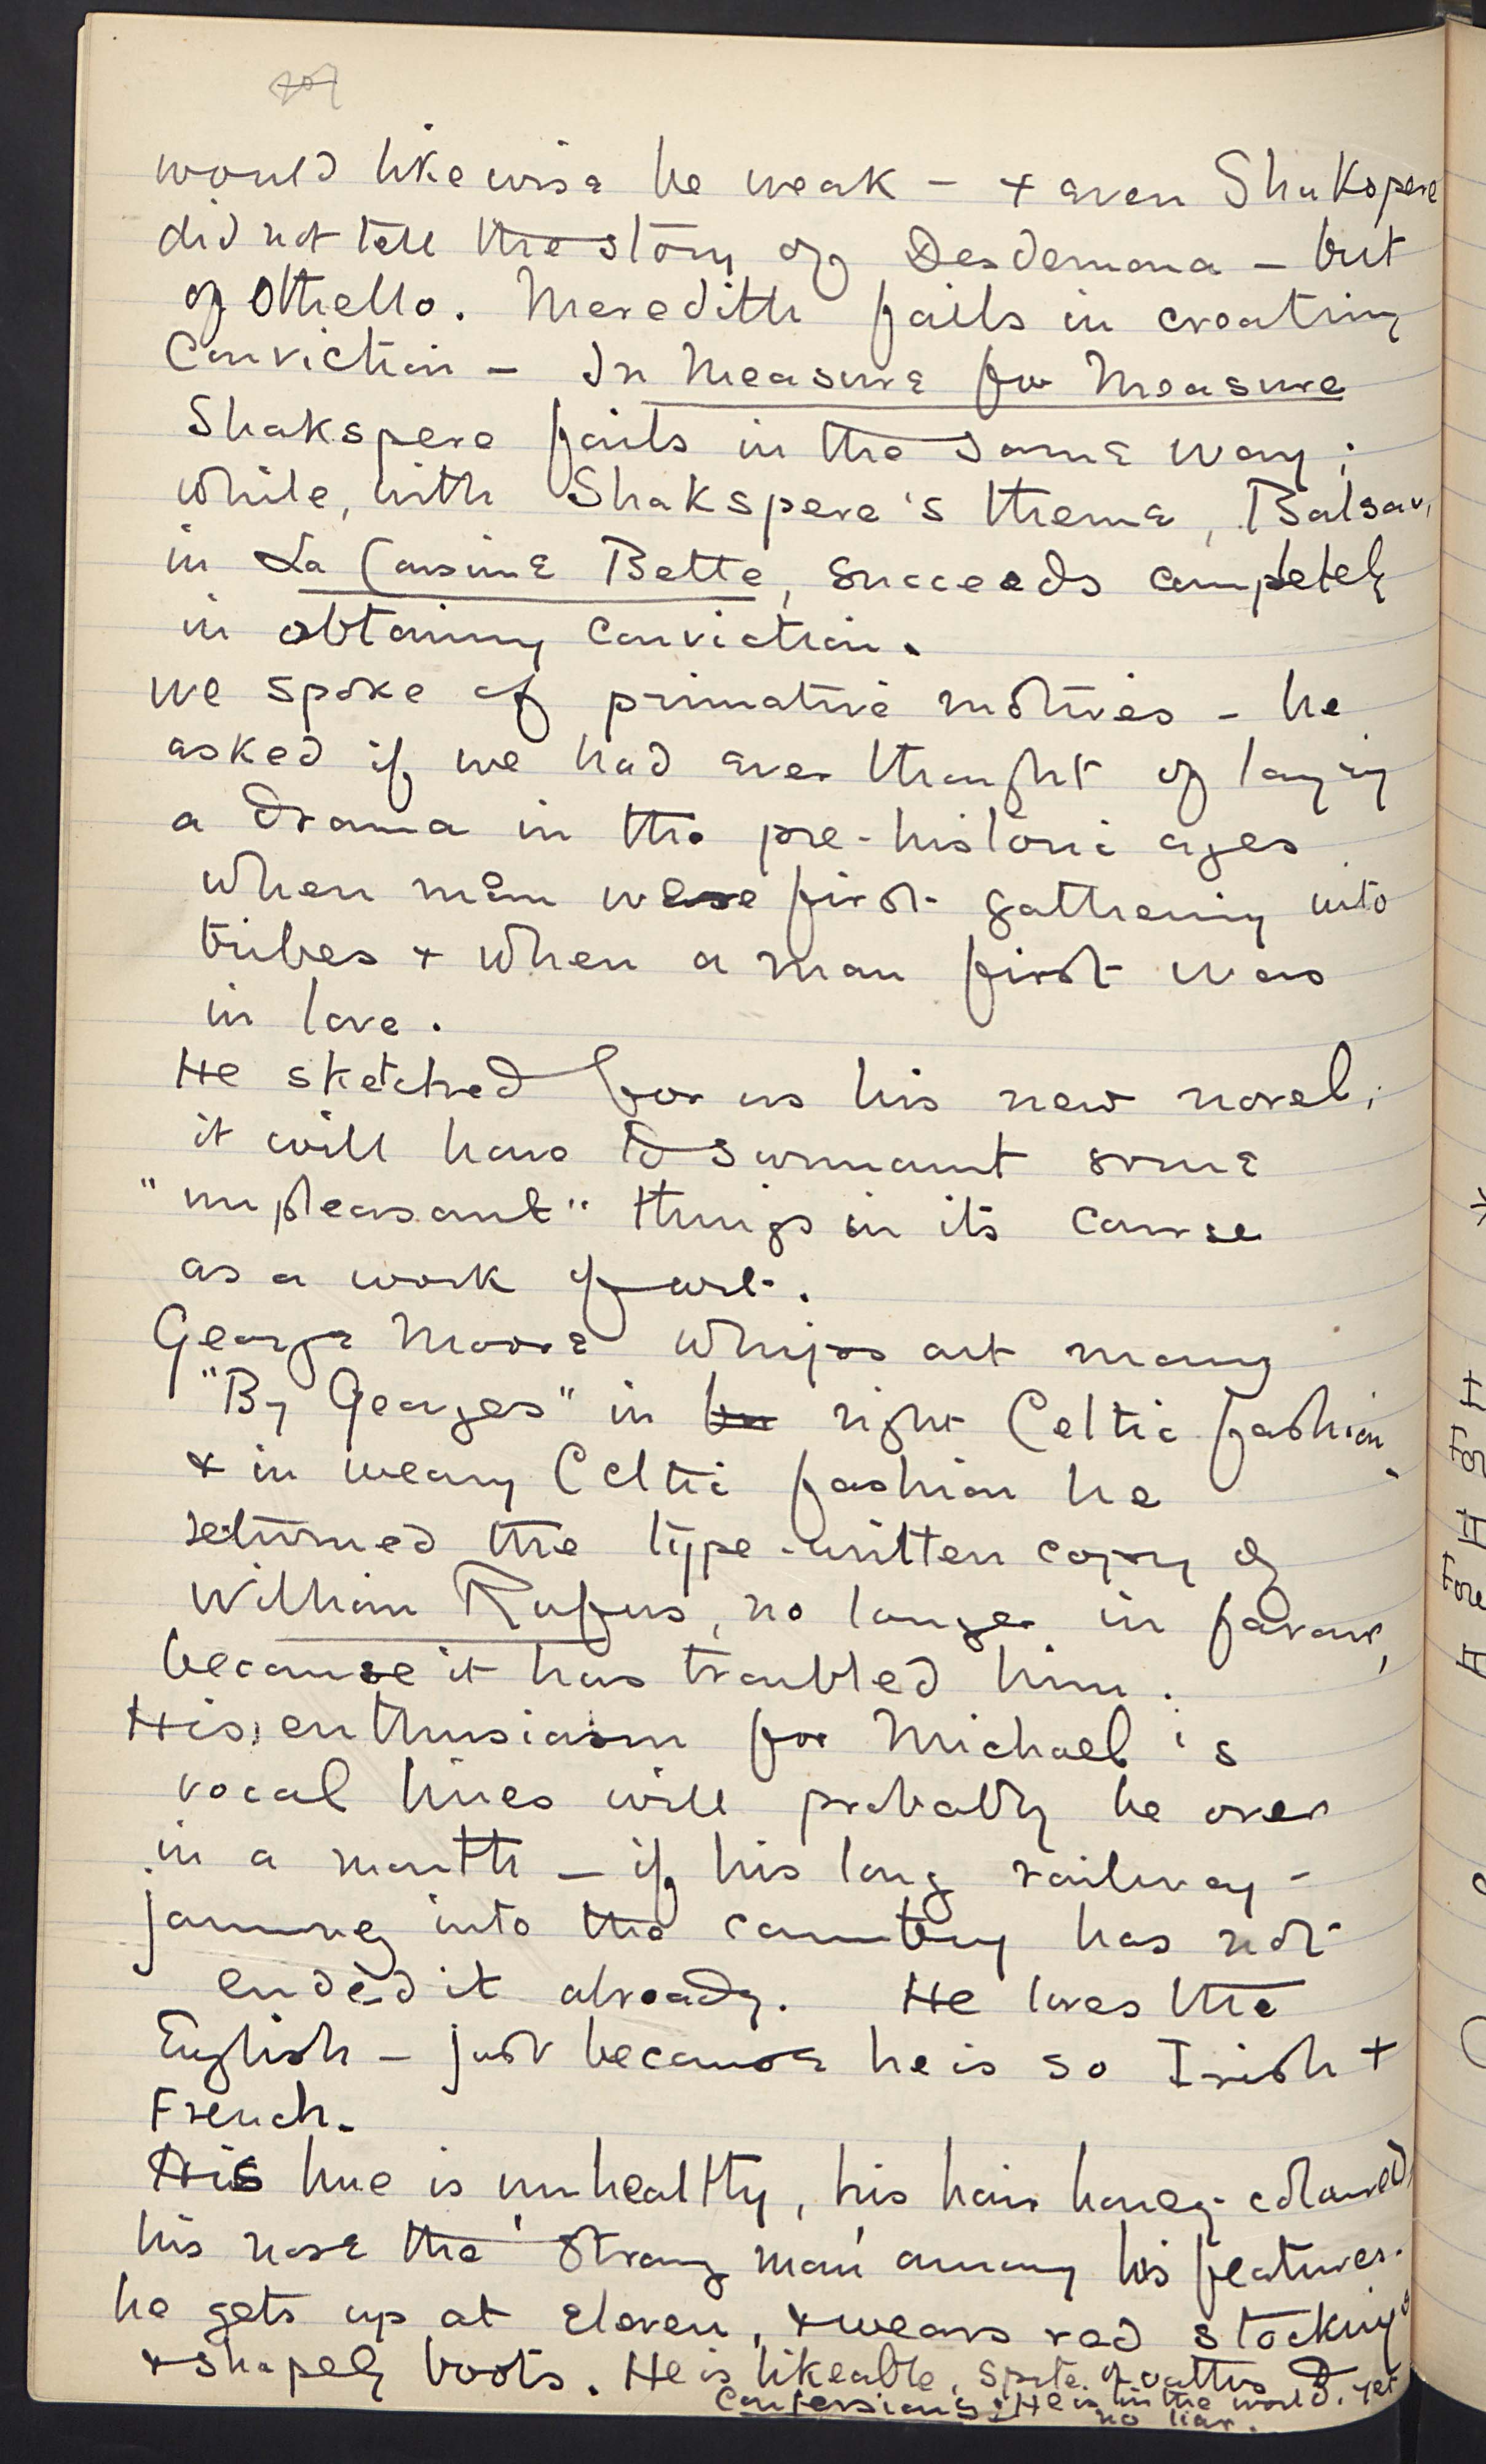 would likewise be weak - + even Shakspere
did not tell the story of Desdemona - but
of Othello. Meredith fails in creating
Conviction - In Measure for Measure
Shakspere fails in the same way;
while, with Shakspere's theme, Balsac,
in La Cousine Bette, succeeds completely
in obtaining conviction.
We spoke of primative motives - he
asked if we had ever thought of laying
a drama in the pre-historic ages
when men were first gathering into
tribes + when a man first was
in love.
He sketched for us his new novel;
it will have to surmount some
"unpleasant" things in its course
as a work of art.
George Moore whips out many
"By Georges" in right Celtic fashion,
+ in weary Celtic fashion he
returned the type-written copy of
William Rufus, no longer in favour,
because it has troubled him.
His enthusiasm for Michael's
vocal lines will probably be over
in a month - if his long railway-
journey into the country has not
ended it already. He loves the
English - just because he is so Irish +
French.
His hue is unhealthy, his hair honey-coloured,
his nose the 'strong man' among his features.
he gets up at eleven, + wears red stockings
+ shapely boots. He is likeable, spite of
Confessions: He is in the world, yet
no liar.